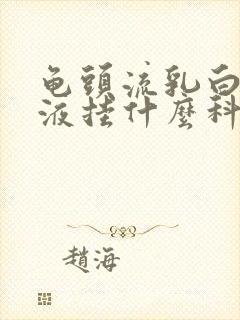 龟頭流乳白
液挂什麼科
趙海